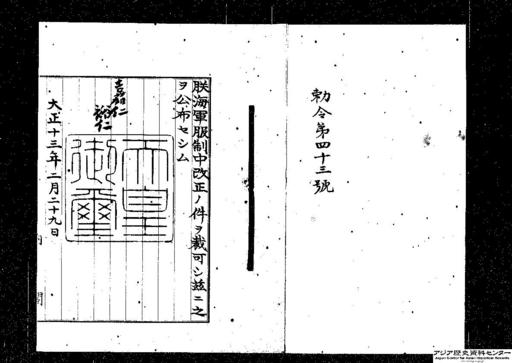 勅令第四十三號
朕海軍服制中改正ノ件ヲ裁可シ茲ニ之
ヲ公布セシム
嘉仁
裕仁
天皇
御璽
大正十三年二月二十九日
アジア歴史資料センター
Japan Center for Asian Historical Records